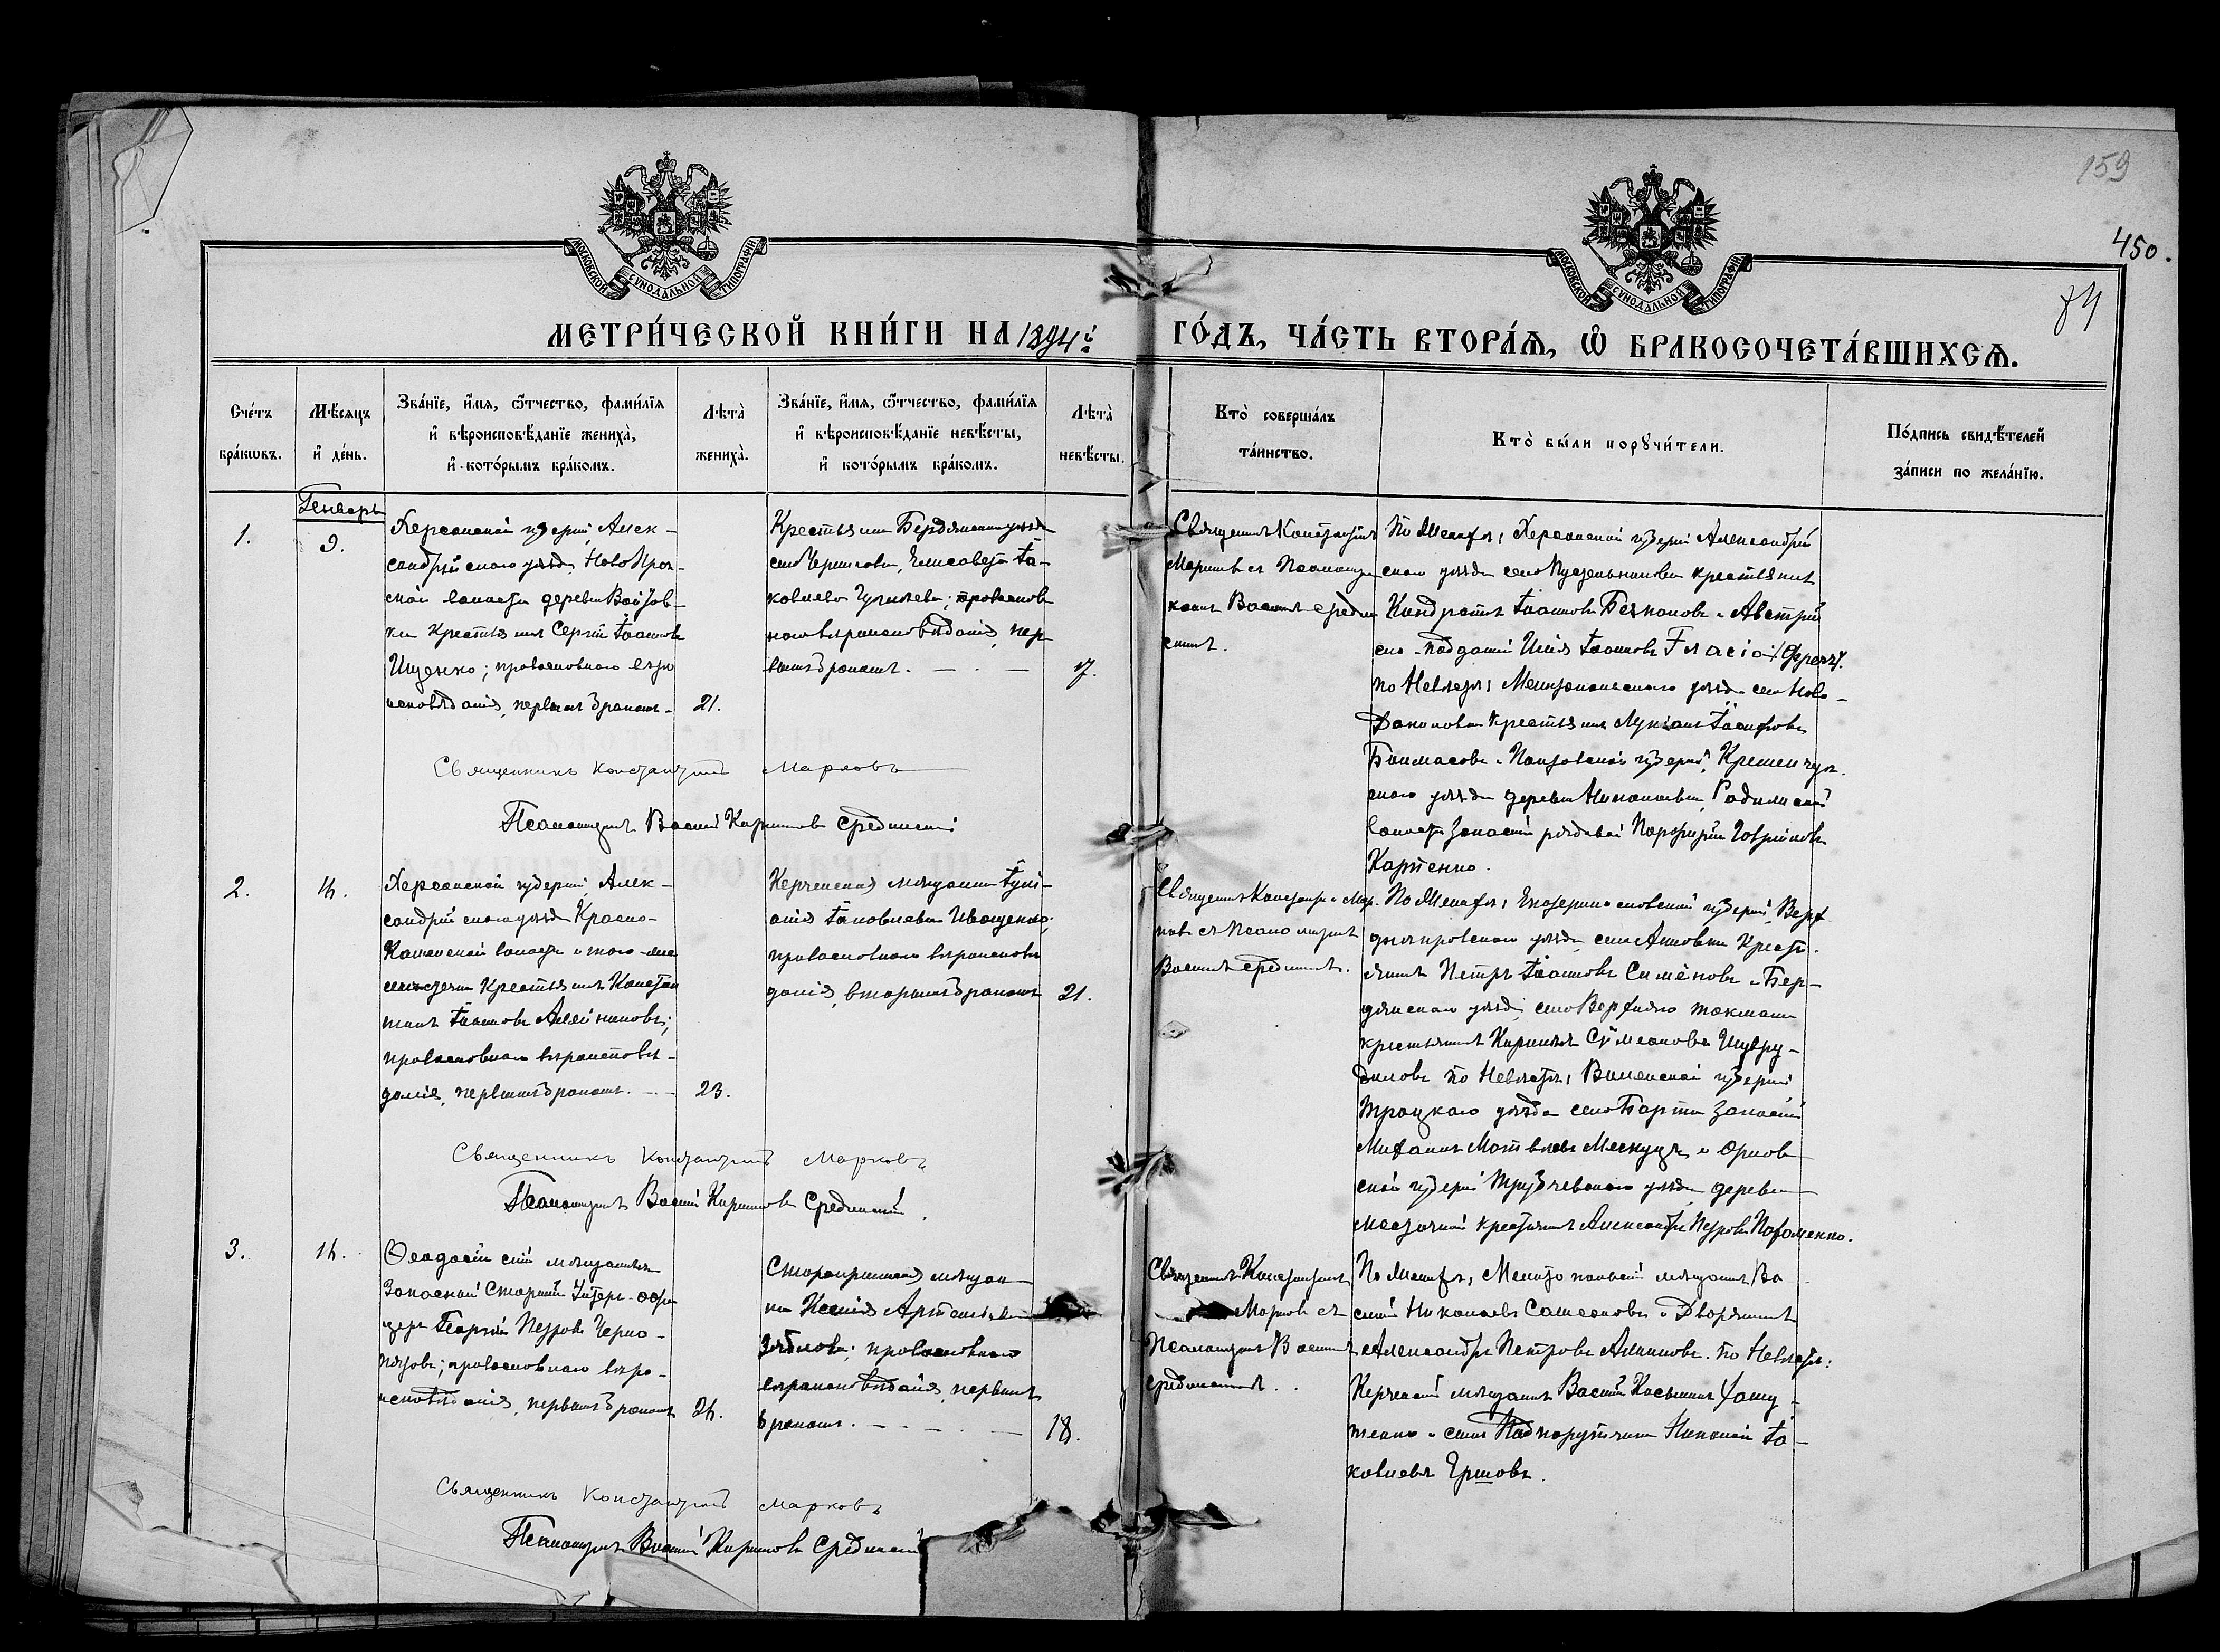 159
450.
84
МОСКОВСКОЙ СѴНОДАЛЬНОЙ ТИПОГРАФІИ
МОСКОВСКОЙ СѴНОДАЛЬНОЙ ТИПОГРАФІИ
МЕТРИ́ЧЕСКОЙ КНИ́ГИ НА 1894й ГО́ДЪ, ЧА́СТЬ ВТОРА́Ѧ, Ѽ БРАКОСОЧЕТА́ВШИХСѦ.
Сче́тъ бра́кѡвъ.
Мѣ́сяцъ и҆ де́нь.
Зва́нїе, и҆́мя, ѻ҆́тчество, фами́лїя и҆ вѣроисповѣ́данїе жениха̀, и҆ кото́рымъ бра́комъ.
Лѣта̀ жениха̀.
Зва́нїе, и҆́мя, ѻ҆́тчество, фами́лїя и҆ вѣроисповѣ́данїе невѣ́сты, и҆ кото́рымъ бра́комъ.
Лѣта̀ невѣ́сты.
Кто̀ соверша́лъ та́инство.
Кто̀ бы́ли порꙋчи́тели.
По́дпись свидѣ́телей за́писи по жела́нїю.
Генварь
1.
9.
Херсонской губерніи, Алек-
сандрійскаго уѣзда, Ново Праж-
ской волости деревни Войтов-
ки крестьянинъ Сергій Іоанновъ
Ищенко; православнаго вѣро
исповѣданія, первымъ бракомъ.
21.
Крестьянка Бердянскаго уѣзда
села Черниговки, Елисавета Іа-
ковлева; православ
наго вѣроисповѣданія, пер-
вымъ бракомъ.
17.
Священникъ Константинъ
Марковъ съ Псаломщи
комъ Василіемъ Средин
скимъ.
По Женихѣ: Херсонской губерніи Александрій
скаго уѣзда крестьянинъ
Кондратъ Іоанновъ и Австрій
ско-подданный Іоанновъ
По Невѣстѣ: Мелитопольскаго уѣзда село Ново-
Даниловки крестьянинъ Лукіанъ Іосифовъ
и Полтавской губерніи, Кременчуг
скаго уѣзда деревни Николаевки,
волости запасный рядовой Порфирій Гавріиловъ
Карпенко.
Священникъ Константинъ Марковъ
Псаломщикъ Василій Кирилловъ Срединскій
2.
14.
Херсонской губерніи, Алек-
сандрійскаго уѣзда Красно-
Каменской волости и того-же
мѣстечка крестьянинъ Констан
тинъ Іоанновъ Алейниковъ;
православнаго вѣроисповѣ-
данія, первымъ бракомъ.
23.
Керченская мѣщанка Іулі-
анія Іаковлева Иващенко;
православнаго вѣроисповѣ
данія, вторымъ бракомъ
21.
Священникъ Константинъ Мар-
ковъ съ Псаломщикомъ
Василіемъ Срединскимъ.
По Женихѣ: Екатеринославской губерніи, Верх
днѣпровскаго уѣзда, села Анновки Кресть-
янинъ Петръ Іоанновъ Сименовъ и Бер-
дянскаго уѣзда, село Верхняго Токмака
крестьянинъ Кириллъ Сѵмеоновъ
По Невѣстѣ: Виленской губерніи
Троцкаго уѣзда запасный
Михаилъ Матвѣевъ и Орлов
ской губерніи Трубчевскаго уѣзда, деревни
крестьянинъ Александръ Петровъ Пархоменко.
Священникъ Константинъ Марковъ
Псаломщикъ Василій Кирилловъ Срединскій.
3.
14.
Ѳеодосійскій мѣщанинъ
Запасный Старшій Унтеръ-офи
церъ Георгій Петровъ Черно-
пятовъ; православнаго вѣро-
исповѣданія, первымъ бракомъ
24.
Старокрымская мѣщан
ка Ксенія Артемьева
Зяблова; православнаго
вѣроисповѣданія, первымъ
бракомъ.
18.
Священникъ Константинъ
Марковъ съ
Псаломщикомъ Василіемъ
Срединскимъ.
По Женихѣ: Мелитопольскій мѣщанинъ Ва
силій Николаевъ и Дворянинъ
Александръ Петровъ. По Невѣстѣ:
Керченскій мѣщанинъ Василій Косьминъ
и сынъ Подпоручика Николай Іа-
ковлевъ Ершовъ.
Священникъ Константинъ Марковъ
Псаломщикъ Василій Кирилловъ Срединскій